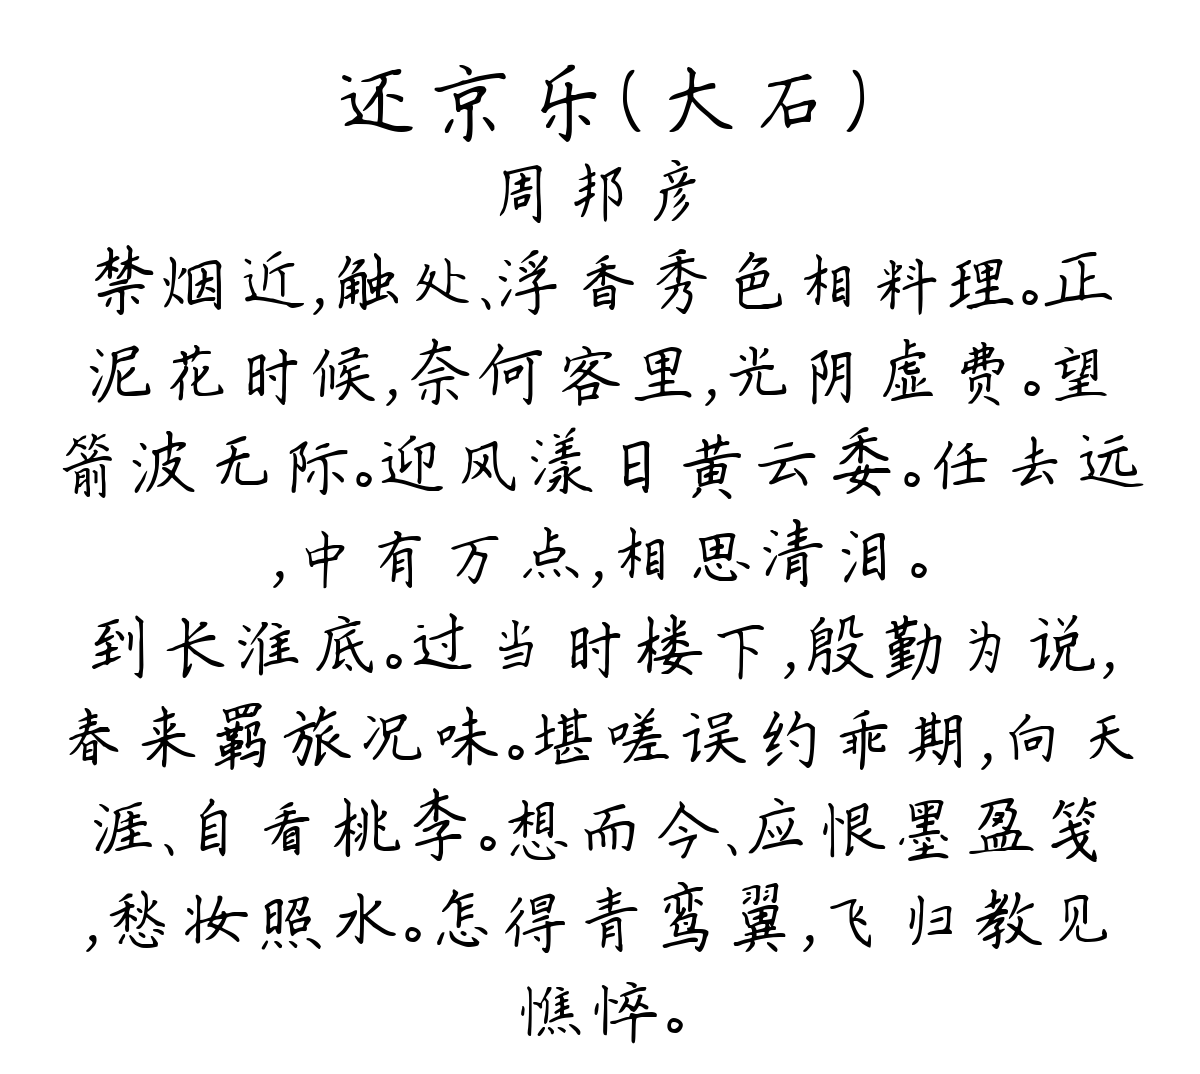 还京乐(大石)
周邦彦
禁烟近,触处、浮香秀色相料理。正
泥花时候,奈何客里,光阴虚费。望
箭波无际。迎风漾日黄云委。任去远
,中有万点,相思清泪。
到长淮底。过当时楼下,殷勤为说,
春来羁旅况味。堪嗟误约乖期,向天
涯、自看桃李。想而今、应恨墨盈笺
,愁妆照水。怎得青鸾翼,飞归教见
憔悴。